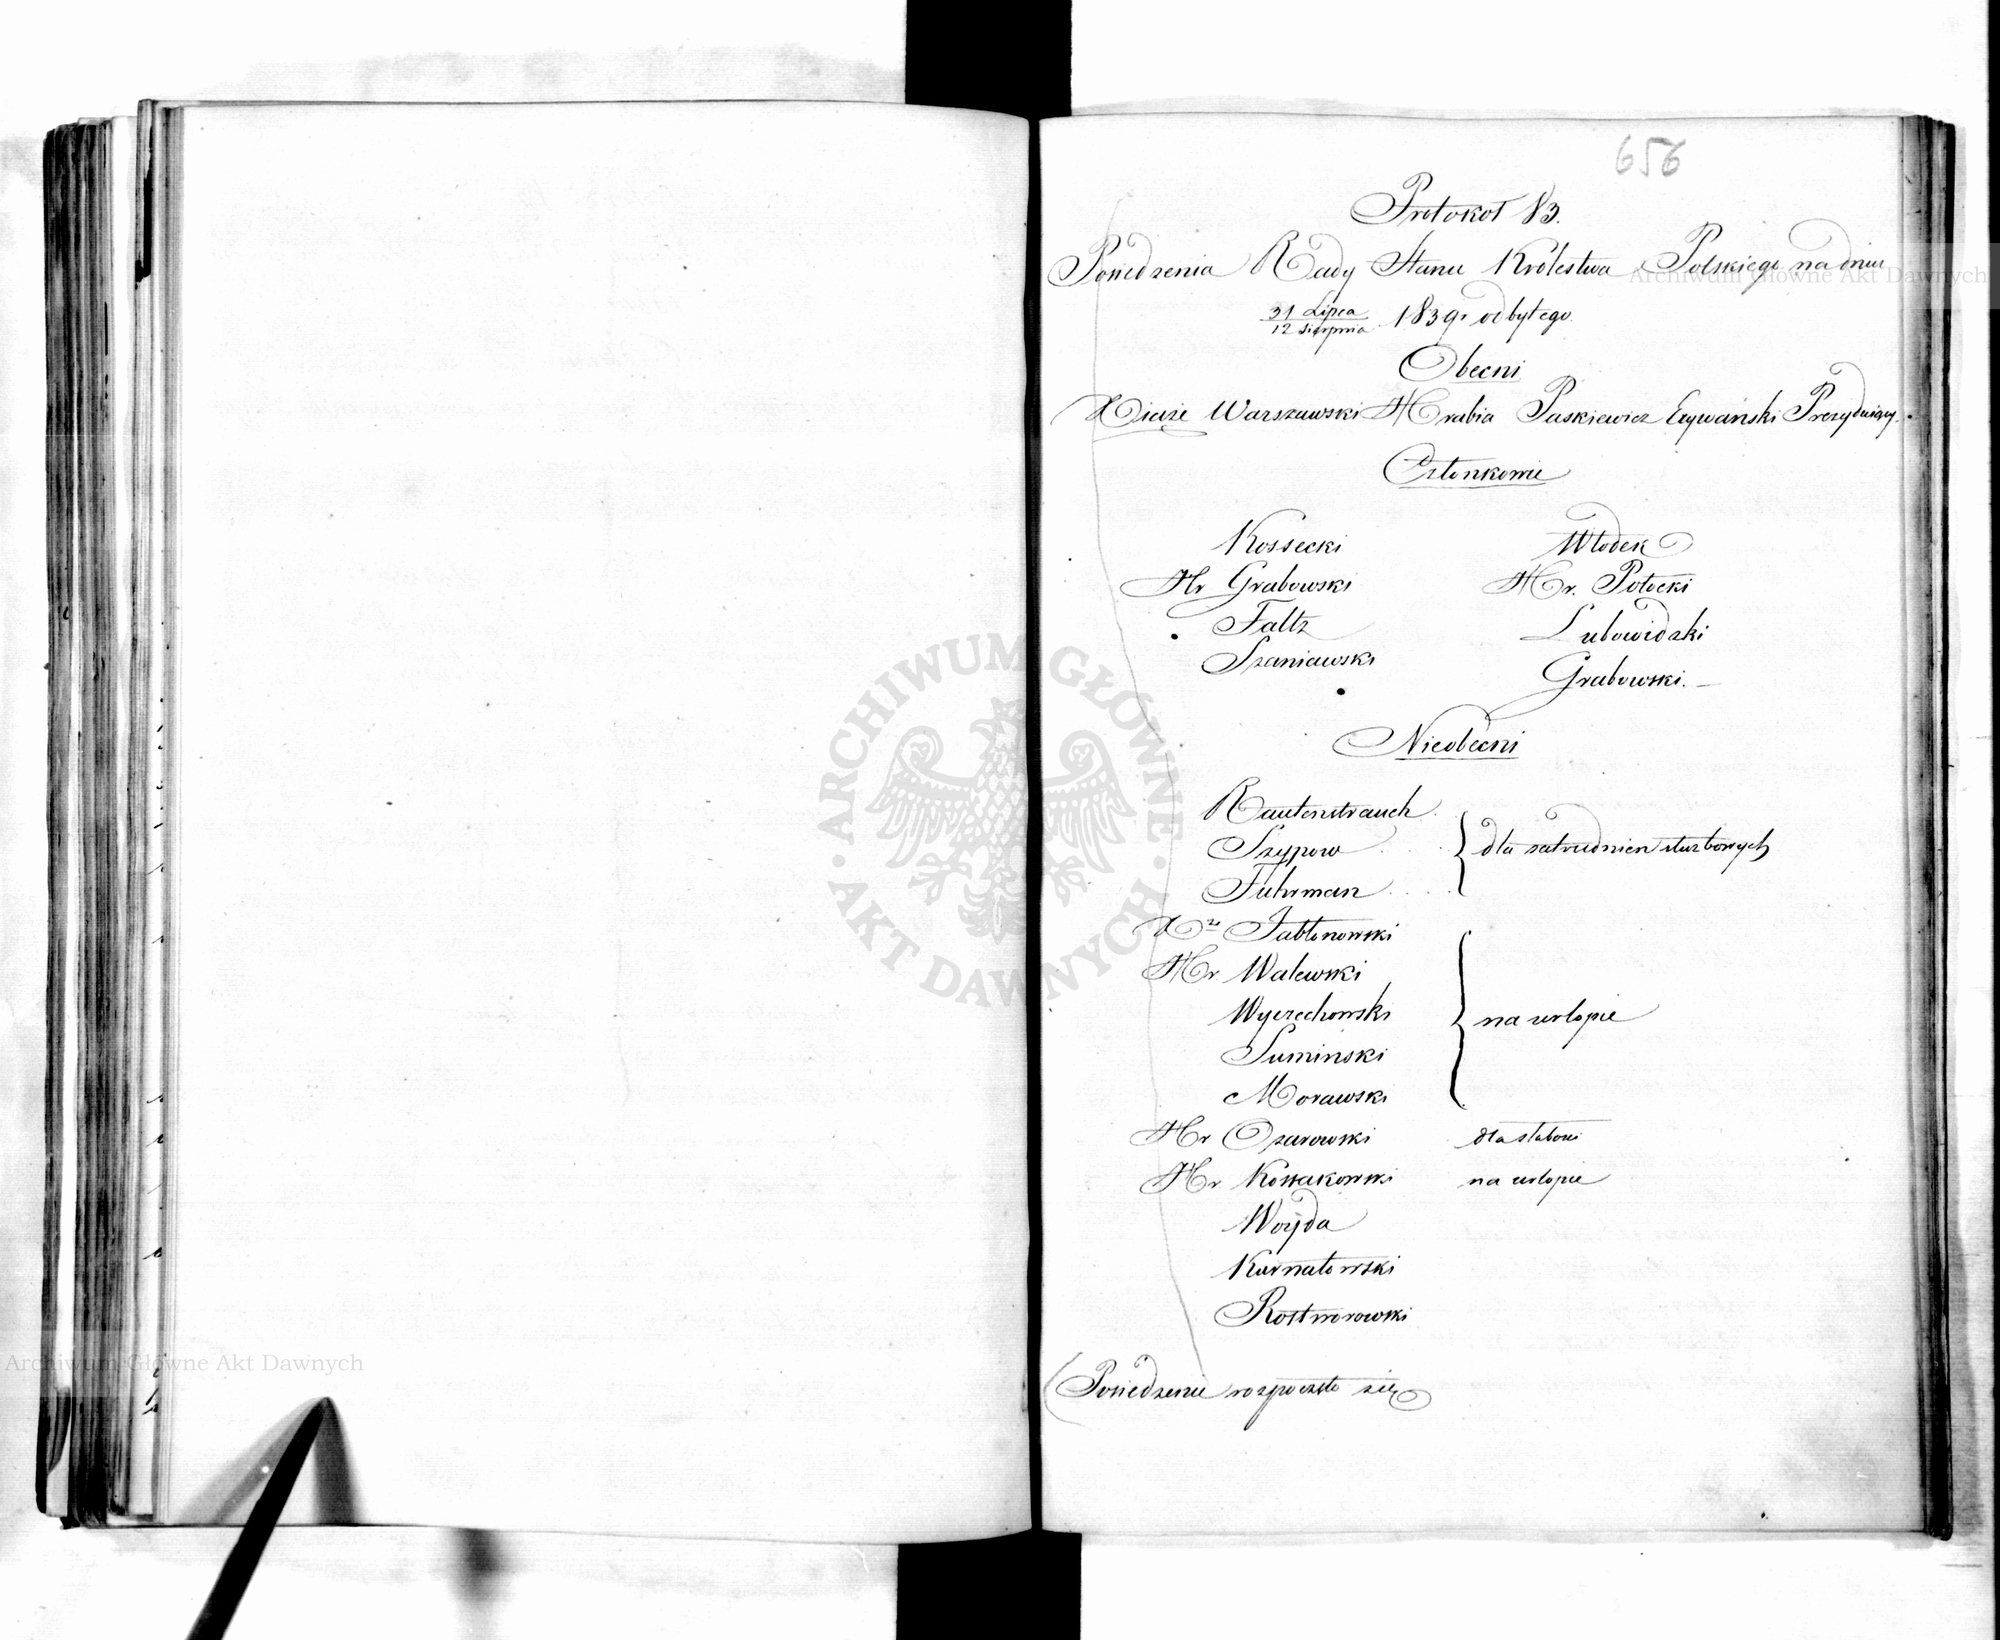 656
Protokoł 83.
Posiedzenia Rady Stanu Królestwa Polskiego na dniu
31 Lipca / 12 Sierpnia 1839 r. odbytego.
Obecni
Xiąże Warszawski Hrabia Paskiewicz Erywański Prezydujący.
Członkowie
Kossecki Włodek
Hr Grabowski Hr. Potocki
Faltz Lubowidzki
Szaniawski Grabowski. —
Nieobecni
Rautenstrauch
Szypow dla zatrudnien służbowych
Fuhrman
Xże Jabłonowski
Hr Walewski
Wyczechowski na urlopie
Suminski
Morawski
Hr Ożarowski dla słabości
Hr. Kossakowski na urlopie
Woyda
Karnatowski
Rostworowski
Posiedzenie rozpoczęło się
ARCHIWUM GŁÓWNE AKT DAWNYCH
Archiwum Główne Akt Dawnych
Archiwum Główne Akt Dawnych